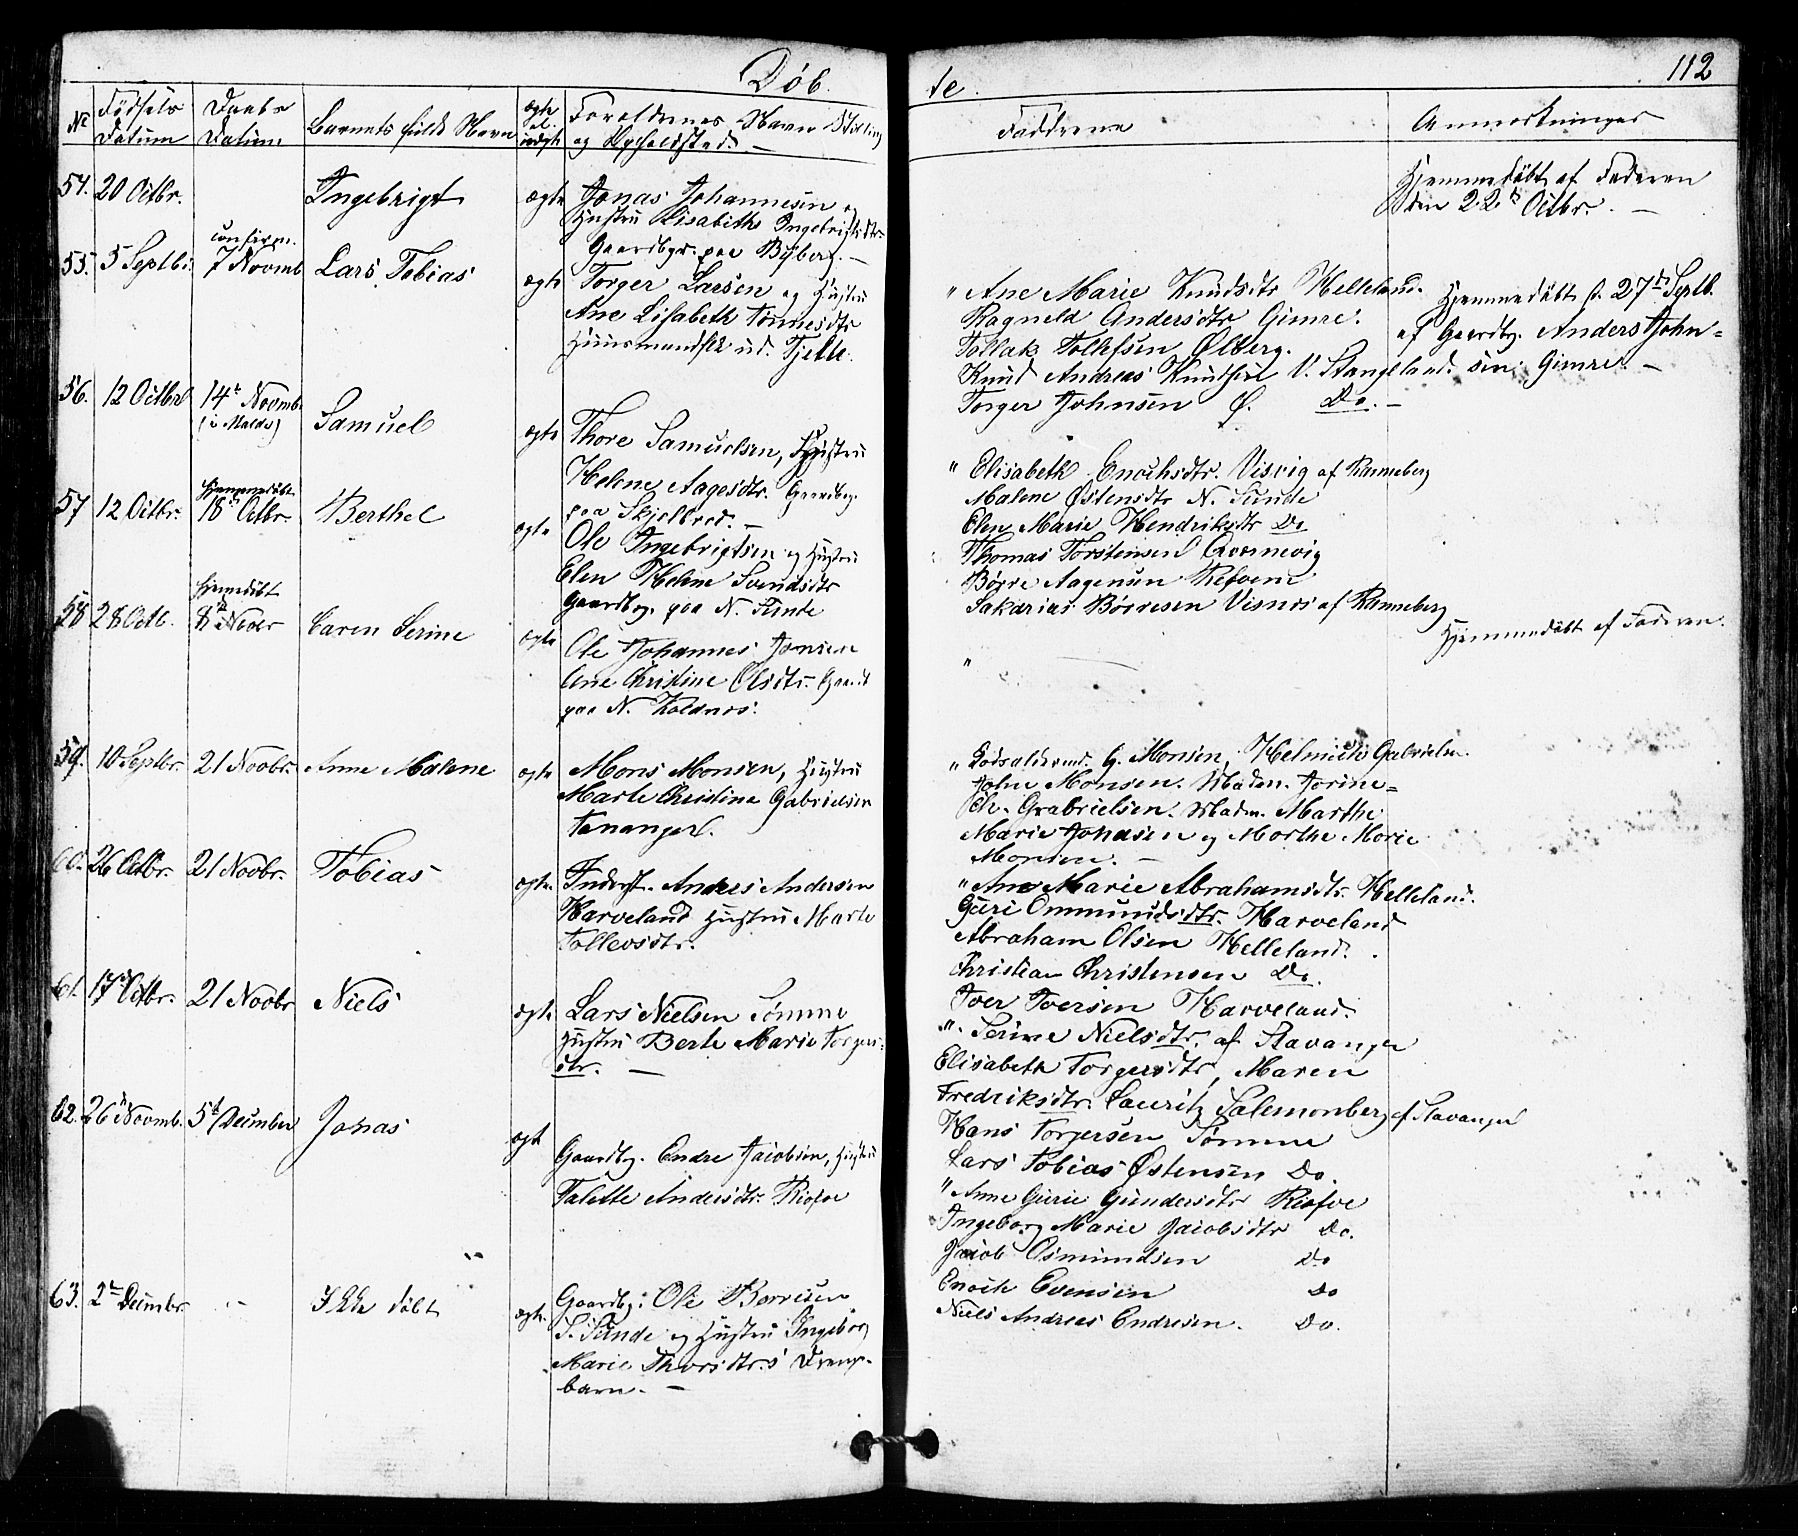 Døb
te.
112
No
Fødsels Datum
Daabs Datum
Barnets fulde Navn
ægte el. uægte
Forældrenes Navn Stilling
og Opholdsted.
Faddrene
Anmærkninger
54. 20 Octbr. Ingebrigt ægte Jonas Johannesen og
Hustru Lisabeth Ingebrigtsdtr
Gaardbgr. paa Byberg. —
Hjemmedøbt af Faderen
den 22de Octbr. —
55. 5 Septbr. confirm. 7 Novmb Lars Tobias ægte Torger Larsen og Hustru
Ane Lisabeth Tønnesdtr
Huusmandsflk ud. Tjelte.
" Ane Marie Knudsdtr Helleland.
Ragneld Andersdtr Gimre.
Tollak Tollefsen Ølberg.
Knud Andreas Knudsen V. Stangeland.
Torger Johnsen Ø. Do. —
Hjemmedøbt d. 27de Septb.
af Gaardbg. Anders John=
sen Gimre. —
56. 12 Octbr 14de Novmb. (i Malde) Samuel ægte Thore Samuelsen, Hustru
Helene Aagesdtr. Gaardbg.
paa Skjelbred. —
" Elisabeth Enochsdtr. Visvig af Ranneberg
Malene Østensdtr N. Sunde
Elen Marie Hendriksdtr Do
Thomas Torstensen Qvernevig
Børre Aagensen Refvem
Sakarias Børresen Visnes af Ranneberg
57 12 Octbr. hjemmedøbt 18de Octbr. Berthel ægte Ole Ingebrigtsen og Hustru
Elen Helene Svendsdtr
Gaardbg. paa N. Sunde
58 28 Octb. hjemmedøbt 8de Novbr Caren Serine ægte Ole Johannes Jonsen
Ane Christine Olsdtr. Gaardb
paa N. Koldnes.
"
Hjemmedøbt af Faderen.
59. 10 Septbr. 21 Novbr. Anne Malene ægte Mons Monsen, Hustru
Marte Christine Gabrielsen
Tananger.
" G. Monsen, Helmich Gabrielsen
John Monsen. Madm. Jorine
Ch. Gabrielsen. Madm. Marthe
Marie Johnsen og Marthe Marie
Monsen. —
60. 26 Octbr. 21 Novbr. Tobias ægte. Inderst. Andres Andersen
Harveland Hustru Marte
Tollevsdtr.
" Ane Marie Abrahamsdtr. Helleland.
Guri Ommundsdtr. Harveland
Abraham Olsen Helleland.
Christian Christensen Do.
Iver Iversen Harveland.
61. 17de Octbr. 21 Novbr Niels ægte Lars Nielsen Sømme
Hustru Berte Marie Torgers=
dtr. —
" Serine Nielsdtr. af Stavanger
Elisabeth Torgersdtr, Maren
Fredriksdtr. Lauritz Salemonberg af Stavanger
Hans Torgersen Sømme
Lars Tobias Østensen Do.
62. 26de Novmb. 5te December Jonas ægt Gaardbg. Endre Jacobsen, Hustru
Talette Andersdtr. Risfoe
" Anne Gurie Gundersdtr Risfoe
Ingeborg Marie Jacobsdtr Do.
Jacob Osmundsen Do
Enoch Evensen Do
Niels Andreas Endresen. Do.
63. 2den Decmbr. — Ikke døbt ægte. Gaardbg. Ole Børresen
S. Sunde og Hustru Ingeborg
Marie Thorsdtr.s Drenge=
barn. —